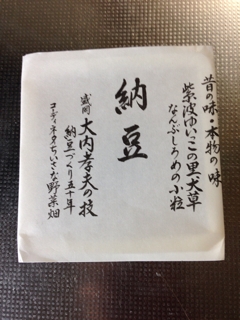 昔の味・本物の味
紫波ゆいっこの里犬草
なんぶしろめの小粒
納豆
盛岡 大内孝夫の技
納豆づくり五十年
コーディネーターちいさな野菜畑